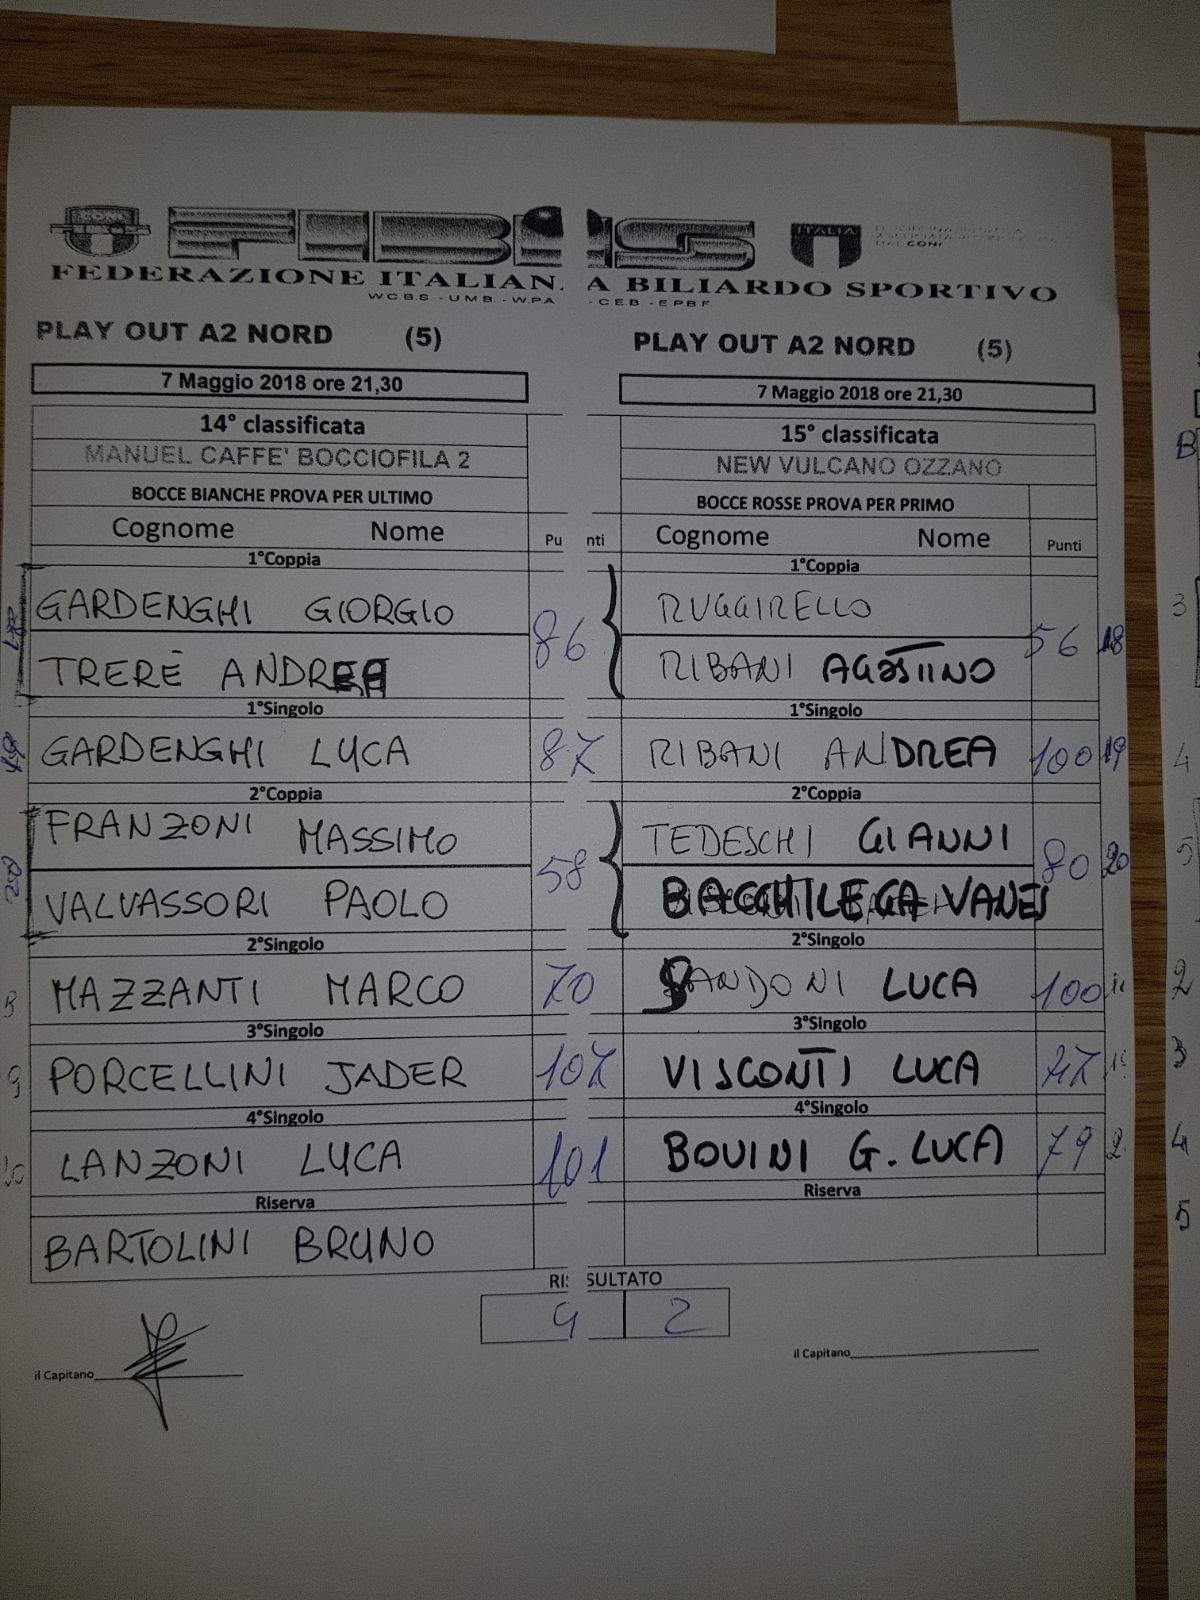 CONI FIBiS ITALIA
FEDERAZIONE ITALIAN. A BILIARDO SPORTIVO
W C B.S. - U M B. - W.P.A - C.E.B. - E P B F.
PLAY OUT A2 NORD (5) PLAY OUT A2 NORD (5)
7 Maggio 2018 ore 21,30 7 Maggio 2018 ore 21,30
14° classificata 15° classificata
MANUEL CAFFE' BOCCIOFILA 2 NEW VULCANO OZZANO
BOCCE BIANCHE PROVA PER ULTIMO BOCCE ROSSE PROVA PER PRIMO
Cognome Nome Pu nti Cognome Nome Punti
1°Coppia 1°Coppia
GARDENGHI GIORGIO 86 RUGGIRELLO 56 18
TRERÉ ANDREA RIBANI AGOSTINO
1°Singolo 1°Singolo
GARDENGHI LUCA 87 RIBANI ANDREA 100 19
2°Coppia 2°Coppia
FRANZONI MASSIMO 58 TEDESCHI GIANNI 80 20
VALVASSORI PAOLO BACCHILEGA VANES
2°Singolo 2°Singolo
MAZZANTI MARCO 70 SANDONI LUCA 100
3°Singolo 3°Singolo
PORCELLINI JADER 107 VISCONTI LUCA 77
4°Singolo 4°Singolo
LANZONI LUCA 101 BOVINI G. LUCA 79
Riserva Riserva
BARTOLINI BRUNO
RI SULTATO
4 2
il Capitano il Capitano